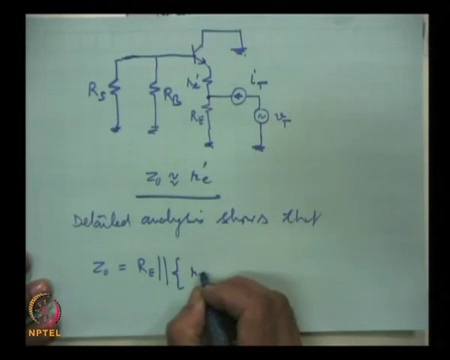 R_S
R_B
r_e'
R_E
i_T
v_T
z_0 ≈ r_e'
Detailed analysis shows that
z_0 = R_E || { r
NPTEL